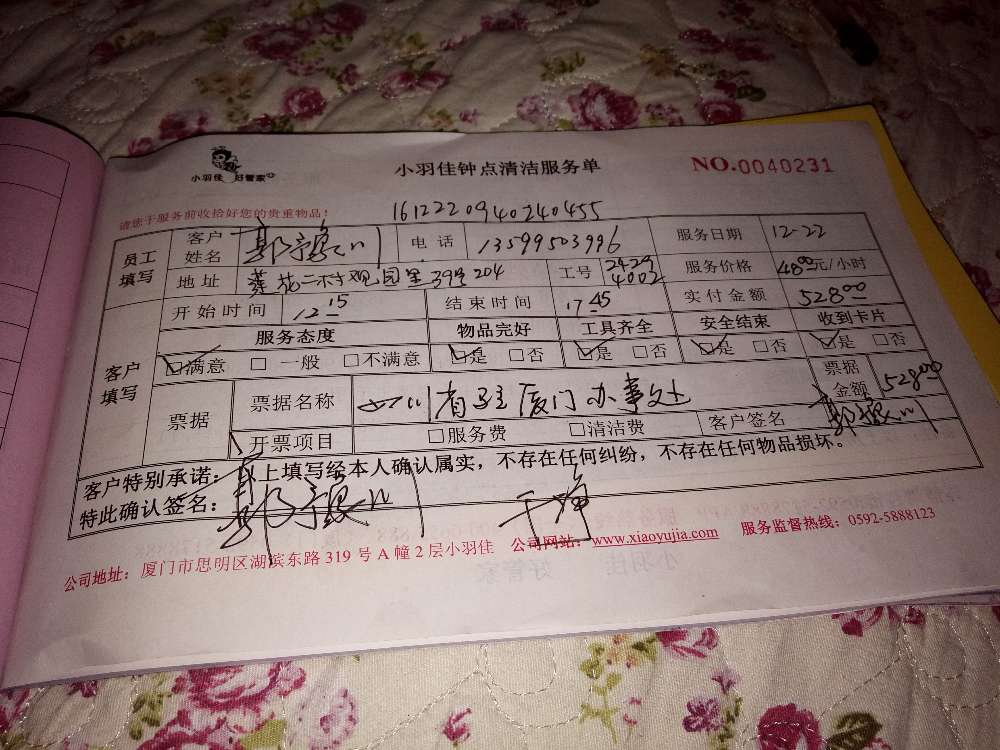 小羽佳 好管家
小羽佳钟点清洁服务单
NO.0040231
请您于服务前收拾好您的贵重物品!
1612220940240455
员工填写 客户姓名 电话 13599503996 服务日期 12-22
地址 莲花二村观园里39号204 工号 2429 4002 服务价格 48.00元/小时
客户填写 开始时间 12 15 结束时间 17 45 实付金额 528.00
服务态度 物品完好 工具齐全 安全结束 收到卡片
☑满意 □ 一般 □不满意 ☑是 □否 ☑是 □否 ☑是 □否 ☑是 □否
票据 票据名称 四川省驻厦门办事处 票据金额 528.00
开票项目 □服务费 □清洁费 客户签名
客户特别承诺:以上填写经本人确认属实,不存在任何纠纷,不存在任何物品损坏。
特此确认签名:
公司地址:厦门市思明区湖滨东路 319 号 A 幢 2 层小羽佳 公司网站:www.xiaoyujia.com 服务监督热线:0592-5888123